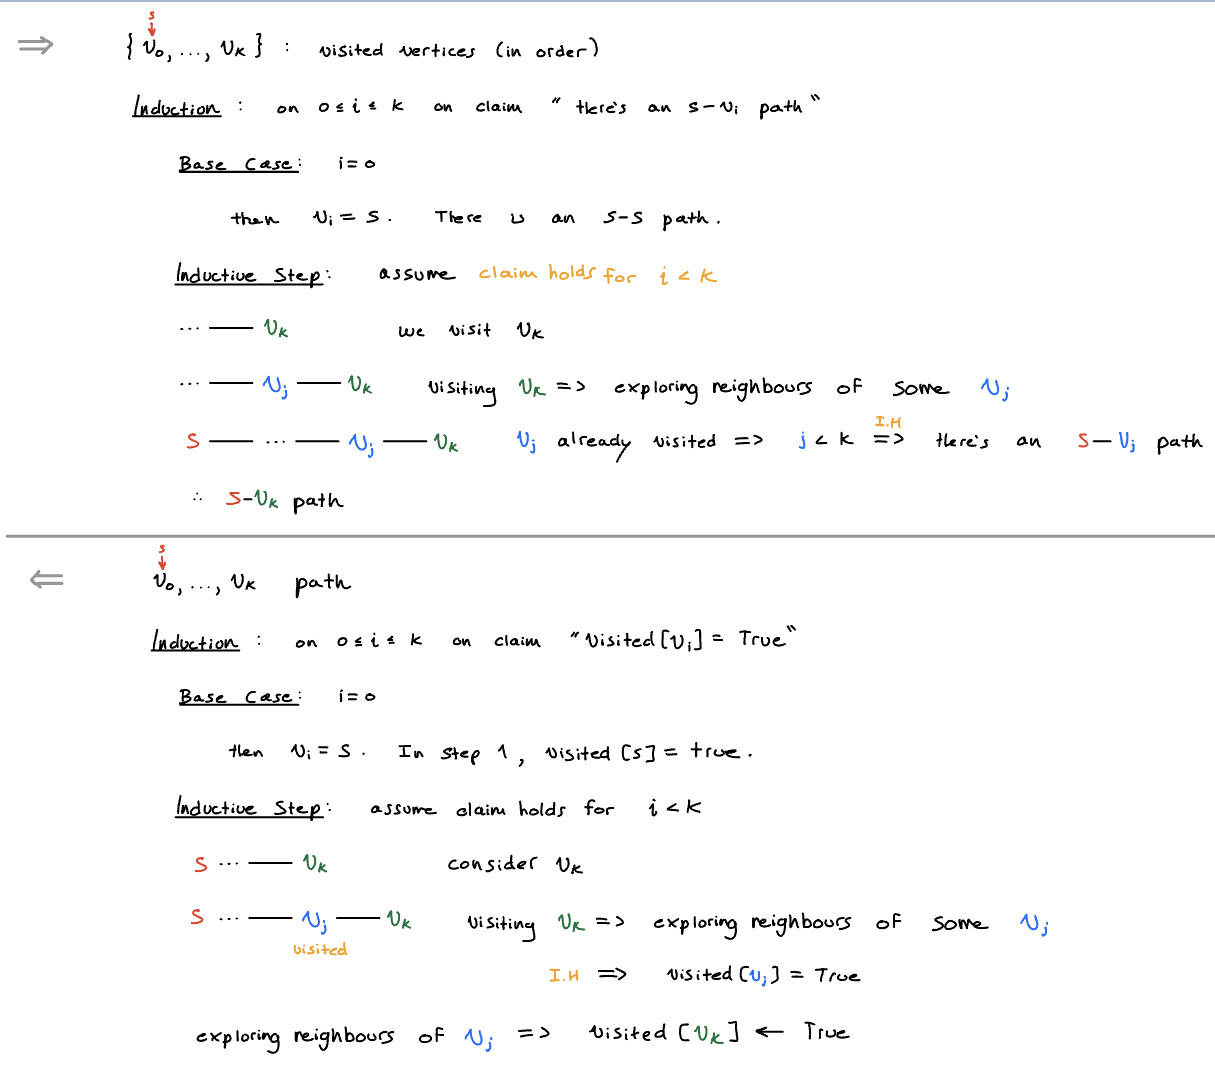 s
⇒ { v₀, ..., vₖ } : visited vertices (in order)
Induction : on 0 ≤ i ≤ k on claim " there's an s-vᵢ path "
Base Case: i = 0
then vᵢ = s. There is an s-s path.
Inductive Step: assume claim holds for i < k
... — vₖ we visit vₖ
... — vⱼ — vₖ visiting vₖ => exploring neighbours of some vⱼ
I.H
s — ... — vⱼ — vₖ vⱼ already visited => j < k => there's an s-vⱼ path
∴ s-vₖ path
s
⇐ v₀, ..., vₖ path
Induction : on 0 ≤ i ≤ k on claim " visited[vᵢ] = True "
Base Case: i = 0
then vᵢ = s. In step 1, visited [s] = true.
Inductive Step: assume claim holds for i < k
s ... — vₖ consider vₖ
s ... — vⱼ — vₖ visiting vₖ => exploring neighbours of some vⱼ
visited
I.H => visited[vⱼ] = True
exploring neighbours of vⱼ => visited [vₖ] ← True